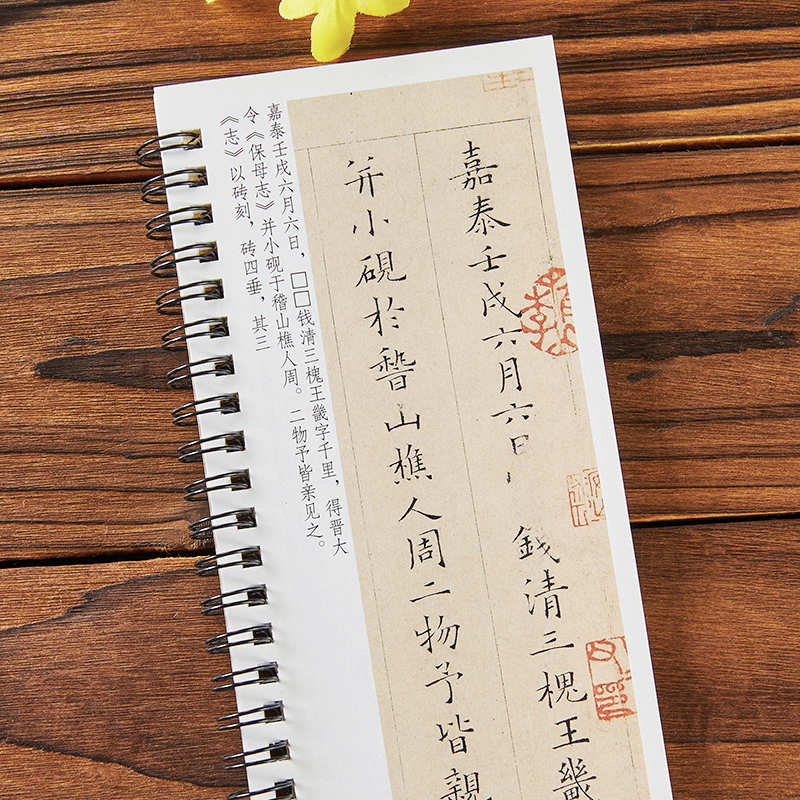 嘉泰壬戌六月六日
錢清三槐王畿
并小硯於稽山樵人周二物予皆親
嘉泰壬戌六月六日，□□钱清三槐王畿字千里，得晋大
令《保母志》并小砚于稽山樵人周。二物予皆亲见之。
《志》以砖刻，砖四垂，其三